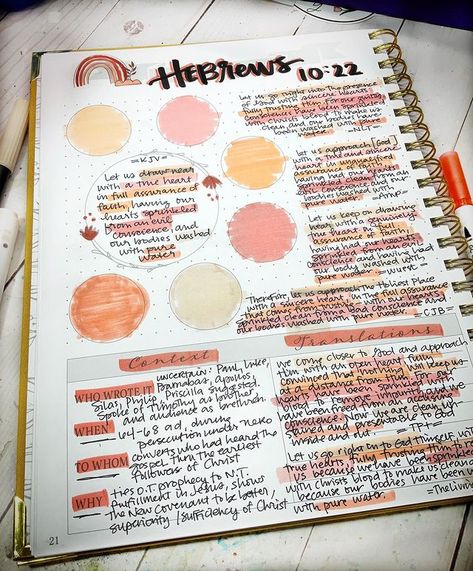 Hebrews 10:22
=KJV=
Let us draw near
with a true heart
in full assurance of
faith, having our
hearts sprinkled
from an evil
conscience, and
our bodies washed
with pure
water.
Let us go right into the presence
of God with sincere hearts
fully trusting Him. For our guilty
consciences have been sprinkled
with Christ's blood to make us
clean, and our bodies have
been washed with pure
water. =NLT=
Let us approach [God]
with a true and sincere
heart in unqualified
assurance of faith,
having had our hearts
sprinkled clean from an
evil conscience and our
bodies washed with
pure water. =Amp=
Let us keep on drawing
near with a genuine,
true heart in full
assurance of faith,
having had our hearts
sprinkled from an evil
conscience and having had
our body washed with
pure water. =Wuest=
Therefore, let us approach the Holiest Place
with a sincere heart, in the full assurance
that comes from trusting - with our hearts
sprinkled clean from a bad conscience and
our bodies washed with pure water. =CJB=
Context
WHO WROTE IT uncertain: Paul, Luke,
Barnabas, Apollos,
Silas, Philip, Priscilla suggested.
Spoke of Timothy as brother
and audience as brethren.
WHEN 64-68 ad, during
persecution under Nero
TO WHOM converts who had heard the
gospel from the earliest
followers of Christ
WHY ties O.T. prophecy to N.T.
fulfillment in Jesus, shows
the New covenant to be better,
superiority/sufficiency of Christ
Translations
We come closer to God and approach
Him with an open heart, fully
convinced that nothing will keep us
at a distance from Him. For our
hearts have been sprinkled with
blood to remove impurity, and we
have been freed from an accusing
conscience. Now we are clean,
unstained and presentable to God
inside and out. =TPT=
Let us go right on to God Himself with
true hearts fully trusting Him to
us because we have been sprinkled
with Christ's blood to make us clean
because our bodies have been
with pure water. =The Livin
21